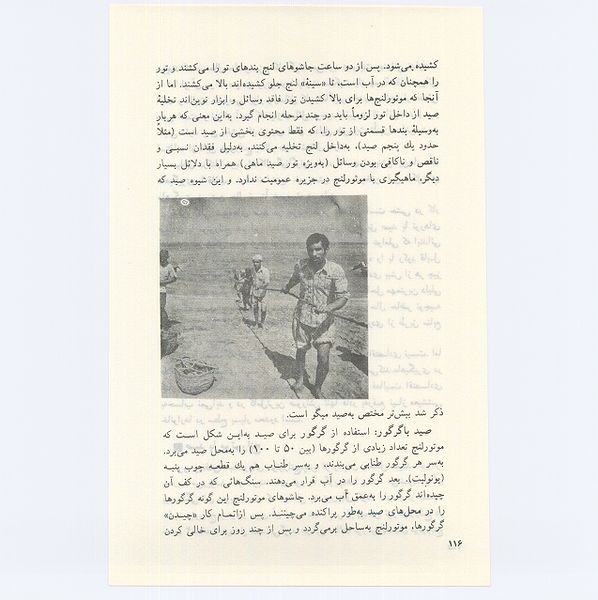 کشیده می‌شود. پس از دو ساعت جاشوهای لنج بندهای تو را می‌کشند و تور
را همچنان که در آب است، تا «سینهٔ» لنج جلو کشیده‌اند بالا می‌کشند. اما از
آنجا که موتورلنج‌ها برای بالا کشیدن تور فاقد وسائل و ابزار نوین‌اند تخلیهٔ
صید از داخل تور لزوماً باید در چند مرحله انجام گیرد. به‌این معنی که هربار
به‌وسیلهٔ بندها قسمتی از تور را، که فقط محتوی بخشی از صید است (مثلاً
حدود یك پنجم صید)، به‌داخل لنج تخلیه می‌کنند. به‌دلیل فقدان نسبی و
ناقص و ناکافی بودن وسائل (به‌ویژه تور صید ماهی) همراه با دلائل بسیار
دیگر، ماهیگیری با موتورلنج در جزیره عمومیت ندارد. و این شیوه صید که
ذکر شد بیش‌تر مختص به‌صید میگو است.
صید باگرگور: استفاده از گرگور برای صید به‌ایـن شکل است که
موتورلنج تعداد زیادی از گرگورها (بین ۵۰ تا ۱۰۰) را به‌محل صید می‌برد.
به‌سر هر گرگور طنابی می‌بندند، و به‌سر طنـاب هم یك قطعـه چوب پنبـه
(یونولیت). بعد گرگور را در آب قرار می‌دهند. سنگ‌هائی که در کف آن
چیده‌اند گرگور را به‌عمق آب می‌برد. جاشوهای موتورلنج این گونه گرگورها
را در محل‌های صید به‌طور پراکنده می‌چیننـد. پس ازاتمـام کار «چیـدن»
گرگورها، موتورلنج به‌ساحل برمی‌گردد و پس از چند روز برای خالی کردن
۱۱۶